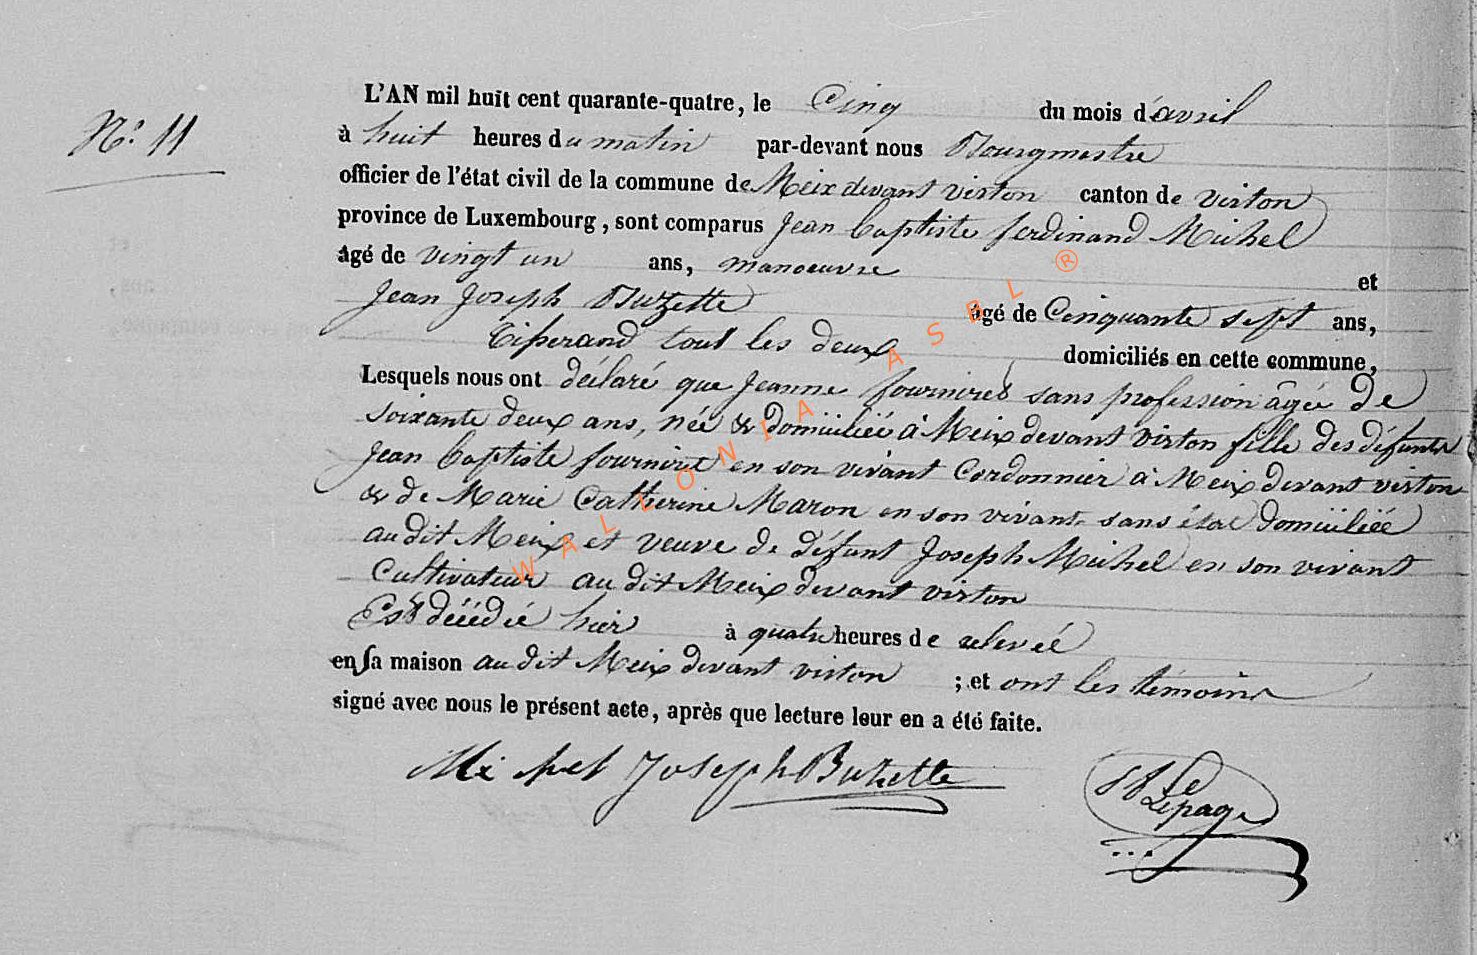 N.° 11
L'AN mil huit cent quarante-quatre, le Cinq du mois d'avril
à huit heures du matin par-devant nous Bourgmestre
officier de l'état civil de la commune de Meix devant virton canton de virton
province de Luxembourg, sont comparus Jean baptiste ferdinand Michel
âgé de vingt un ans, manoeuvre et
Jean Joseph Buzette âgé de Cinquante sept ans,
Tisserand tous les deux domiciliés en cette commune,
Lesquels nous ont déclaré que Jeanne fourniret sans profession âgée de
soixante deux ans, née & domiciliée à Meix devant virton fille des défunts
Jean baptiste fourniret en son vivant Cordonnier à Meix devant virton
& de Marie Catherine Maron en son vivant sans état domiciliée
audit Meix et veuve de défunt Joseph Michel en son vivant
Cultivateur au dit Meix devant virton
Est décédée hier à quatre heures de relevée
en sa maison au dit Meix devant virton ; et ont les témoins
signé avec nous le présent acte, après que lecture leur en a été faite.
Michel Joseph Buzette
Lepage
WALLONIA ASBL ®